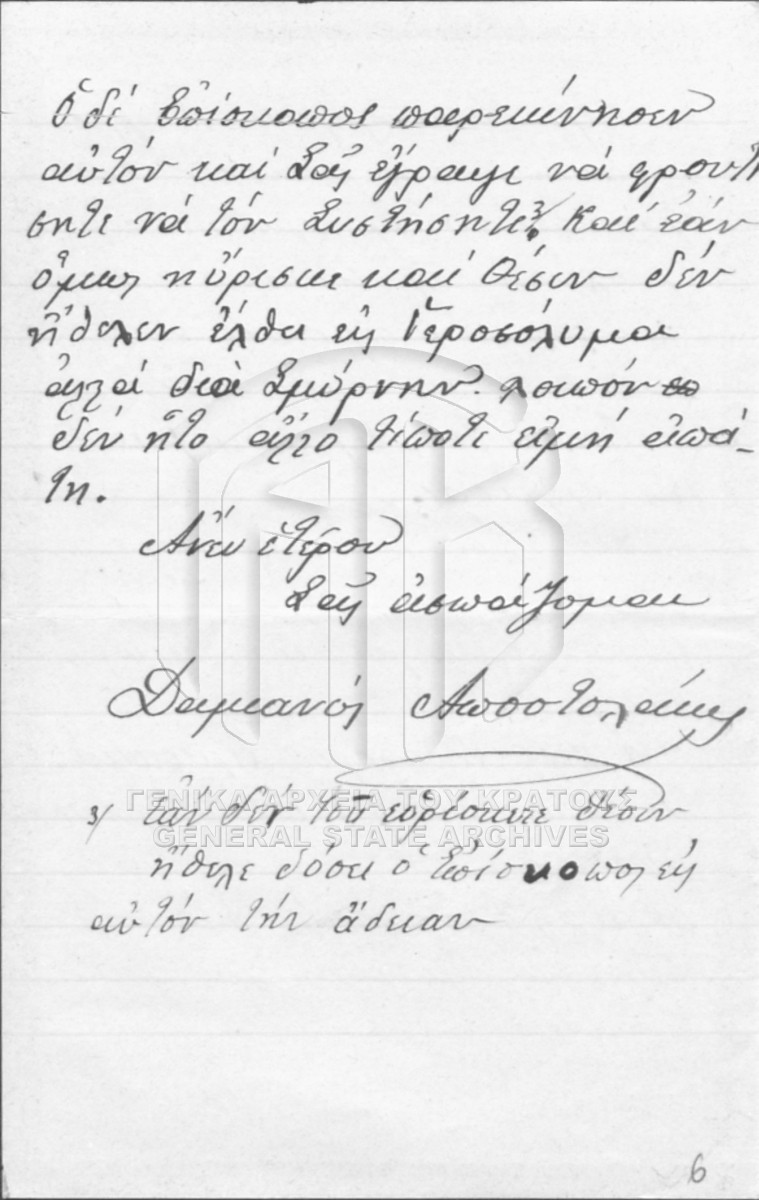 Ὁ δέ Ἐπίσκοπος παρεκίνησεν
αὐτόν καί Σᾶς ἔγραψε νά φροντί
σητε νά τόν Συστήσητε. Καί ἐάν
ὅμως ηὕρισκε καί θέσιν δέν
ἤθελεν ἔλθει εἰς Ἱεροσόλυμα
ἀλλά διά Σμύρνην. λοιπόν
δέν ἦτο ἄλλο τίποτε εἰμή ἀπά-
τη.
Ἄνευ ἑτέρου
Σᾶς ἀσπάζομαι
Δαμιανός Αποστολάκης
3/ ἐάν δέν τοῦ εὑρίσκατε θέσιν
ἤθελε δόσει ὁ Ἐπίσκοπος εἰς
αὐτόν τήν ἄδειαν
ΓΕΝΙΚΑ ΑΡΧΕΙΑ ΤΟΥ ΚΡΑΤΟΥΣ
GENERAL STATE ARCHIVES
6